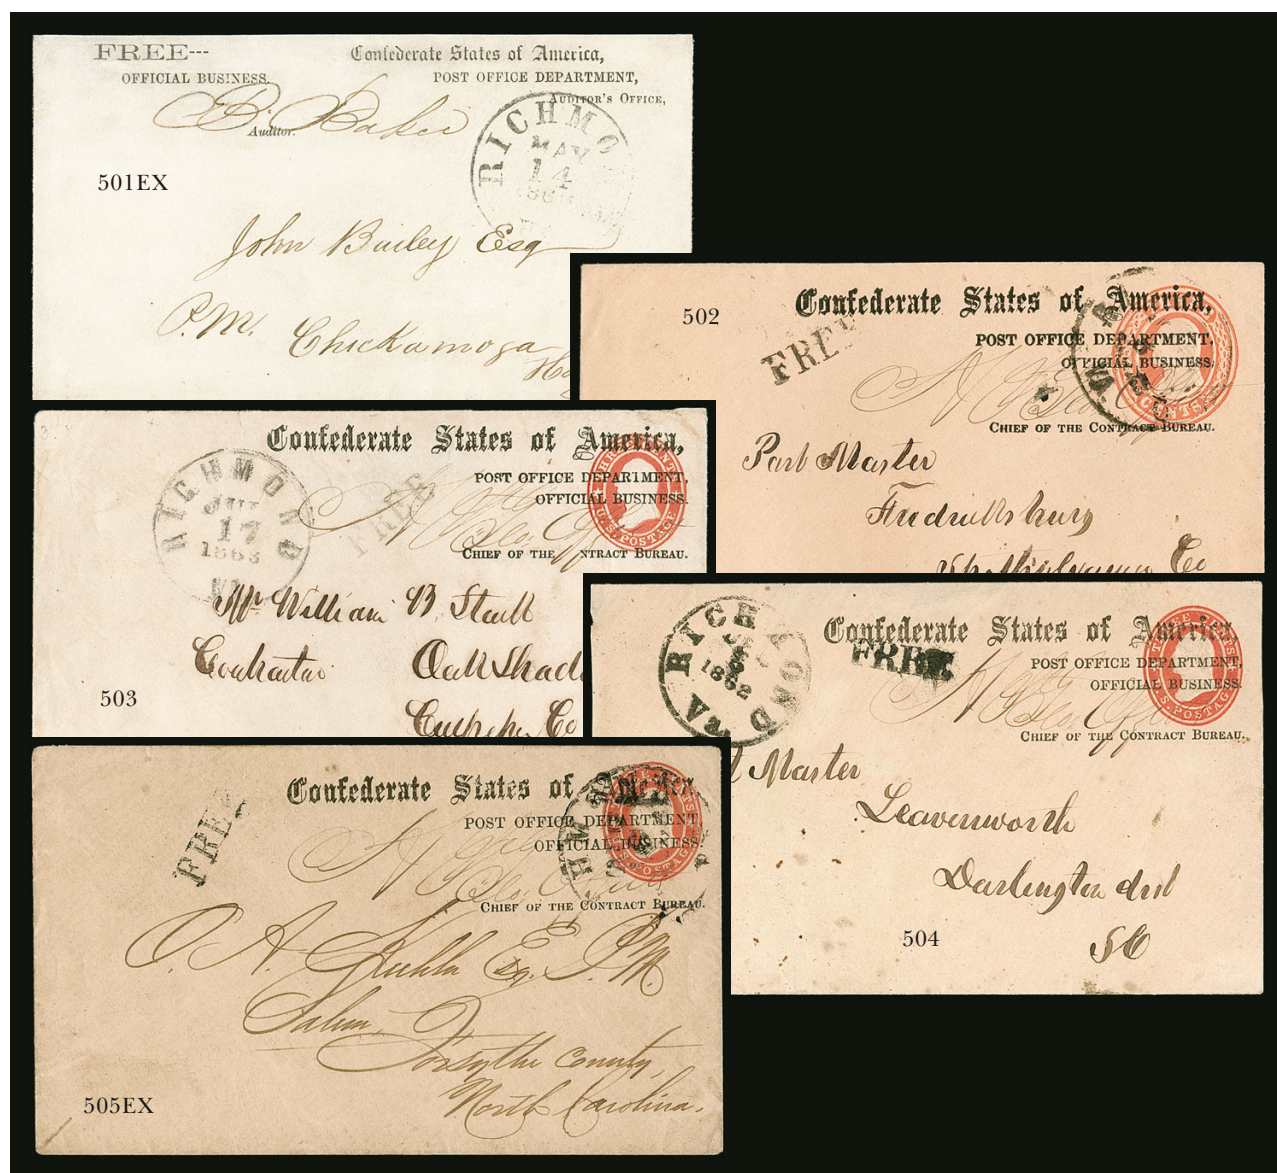 FREE---
OFFICIAL BUSINESS.
Confederate States of America,
POST OFFICE DEPARTMENT,
AUDITOR'S OFFICE,
B. Baker
Auditor.
RICHMO
MAY
14
501EX
John Bailey Esq
P.M.
Chickamoga
502
FREE
Confederate States of America,
POST OFFICE DEPARTMENT,
OFFICIAL BUSINESS.
CENTS
CHIEF OF THE CONTRACT BUREAU.
Post Master
Fredericksburg
Co
Confederate States of America,
POST OFFICE DEPARTMENT,
OFFICIAL BUSINESS.
U.S. POSTAGE
CHIEF OF THE NTRACT BUREAU.
RICHMOND
JUL
17
1863
VA
FREE
Mr William B Staub
Contractor Oak Shade
Culpeper Co
503
RICHMOND VA
1862
FREE.
Confederate States of America,
POST OFFICE DEPARTMENT,
OFFICIAL BUSINESS.
THREE CENTS
U.S. POSTAGE
CHIEF OF THE CONTRACT BUREAU.
t Master
Leavenworth
Darlington dist
SC
504
FREE
Confederate States of America,
POST OFFICE DEPARTMENT,
OFFICIAL BUSINESS.
CHIEF OF THE CONTRACT BUREAU.
O. A. Keehln Esq. P.M.
Salem,
Forsythe County,
North Carolina.
505EX